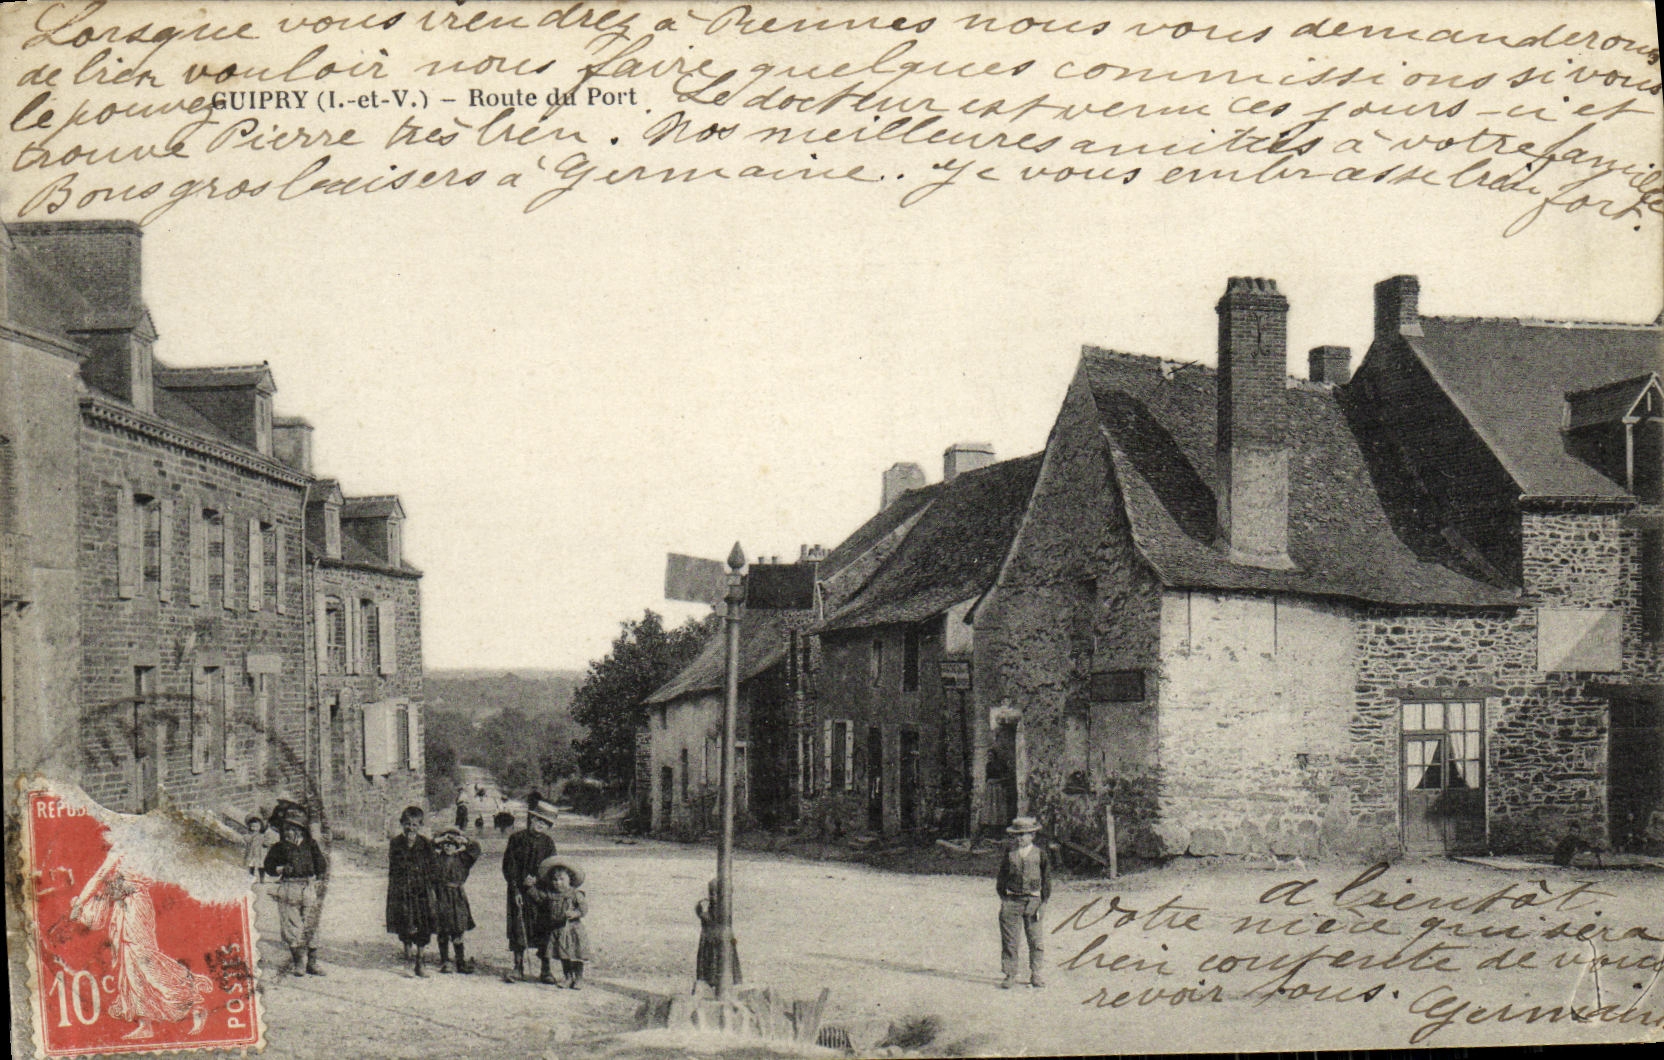 Lorsque vous viendrez à Rennes nous vous demanderons
de bien vouloir nous faire quelques commissions si vous
le pouvez. Le docteur est venu ces jours-ci et
GUIPRY (I.-et-V.) – Route du Port
trouve Pierre très bien. Nos meilleures amitiés à votre famille
Bons gros baisers à Germaine. Je vous embrasse bien
fort.
A bientôt
Votre nièce qui sera
bien contente de vous
revoir tous.
Germaine
REPUB
10c
POSTES